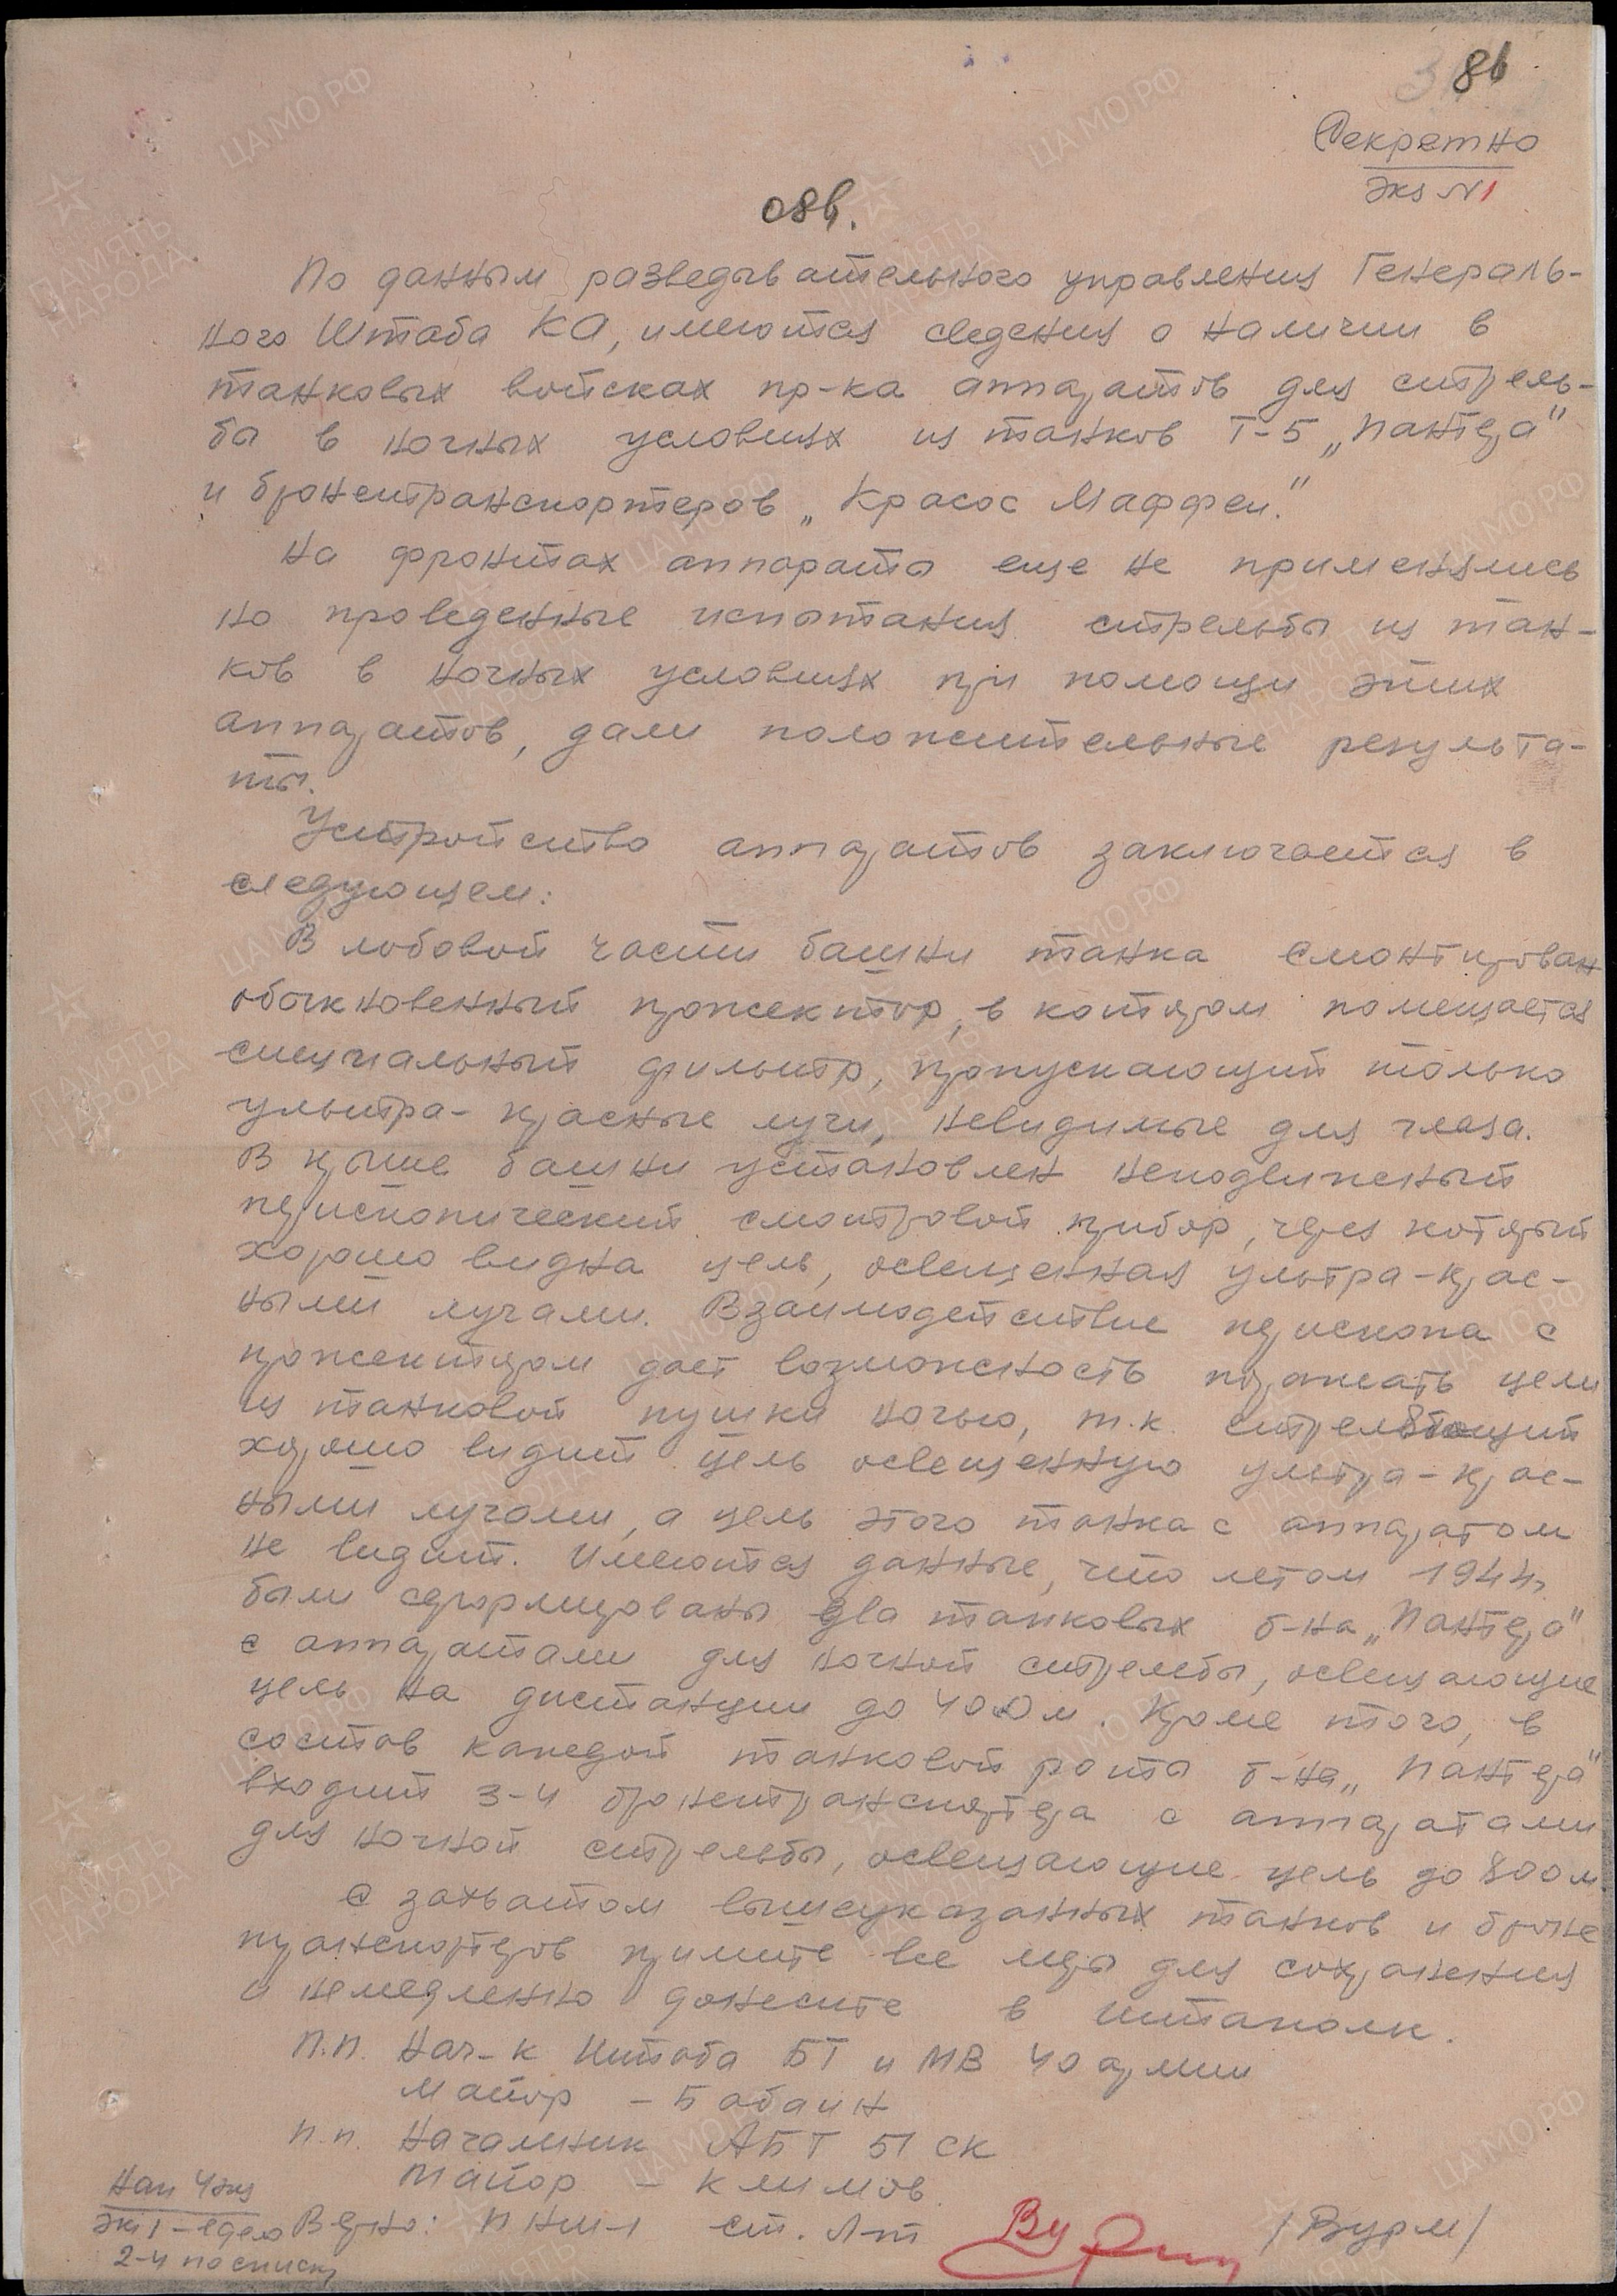 86
Секретно
Экз N1
086.
По данным разведывательного управления Генераль-
ного Штаба КА, имеются сведения о наличии в
танковых войсках пр-ка аппаратов для стрель-
бы в ночных условиях из танков Т-5 „Пантера"
и бронетранспортеров „Красос Маффеи."
На фронтах аппараты еще не применялись
но проведенные испытания стрельбы из тан-
ков в ночных условиях при помощи этих
аппаратов, дали положительные результа-
ты.
Устройство аппаратов заключается в
следующем:
В лобовой части башни танка смонтирован
обыкновенный прожектор, в котором помещается
специальный фильтр, пропускающий только
ультра-красные лучи, невидимые для глаза.
В крыше башни установлен неподвижный
перископический смотровой прибор, через который
хорошо видна цель, освещенная ультра-крас-
ными лучами. Взаимодействие перископа с
прожектором дает возможность поражать цели
из танковой пушки ночью, т.к. стреляющий
хорошо видит цель освещенную ультра-крас-
ными лучами, а цель этого танка с аппаратом
не видит. Имеются данные, что летом 1944г
были сформированы два танковых б-на „Пантера"
с аппаратами для ночной стрельбы, освещающие
цель на дистанции до 400м. Кроме того, в
состав каждой танковой роты б-на „Пантера"
входит 3-4 бронетранспортера с аппаратами
для ночной стрельбы, освещающие цель до 800м
С захватом вышеуказанных танков и броне
транспортеров примите все меры для сохранения
и немедленно донесите в штаполк.
П.п. Нач-к Штаба БТ и МВ 40 армии
Майор – Бабаин
п.п. Начальник АБТ 51 СК
Майор – Климов.
Верно: ПНШ-1 ст. л-т /Вурм/
Нап 4экз
Экз 1 – в дело
2-4 по списку